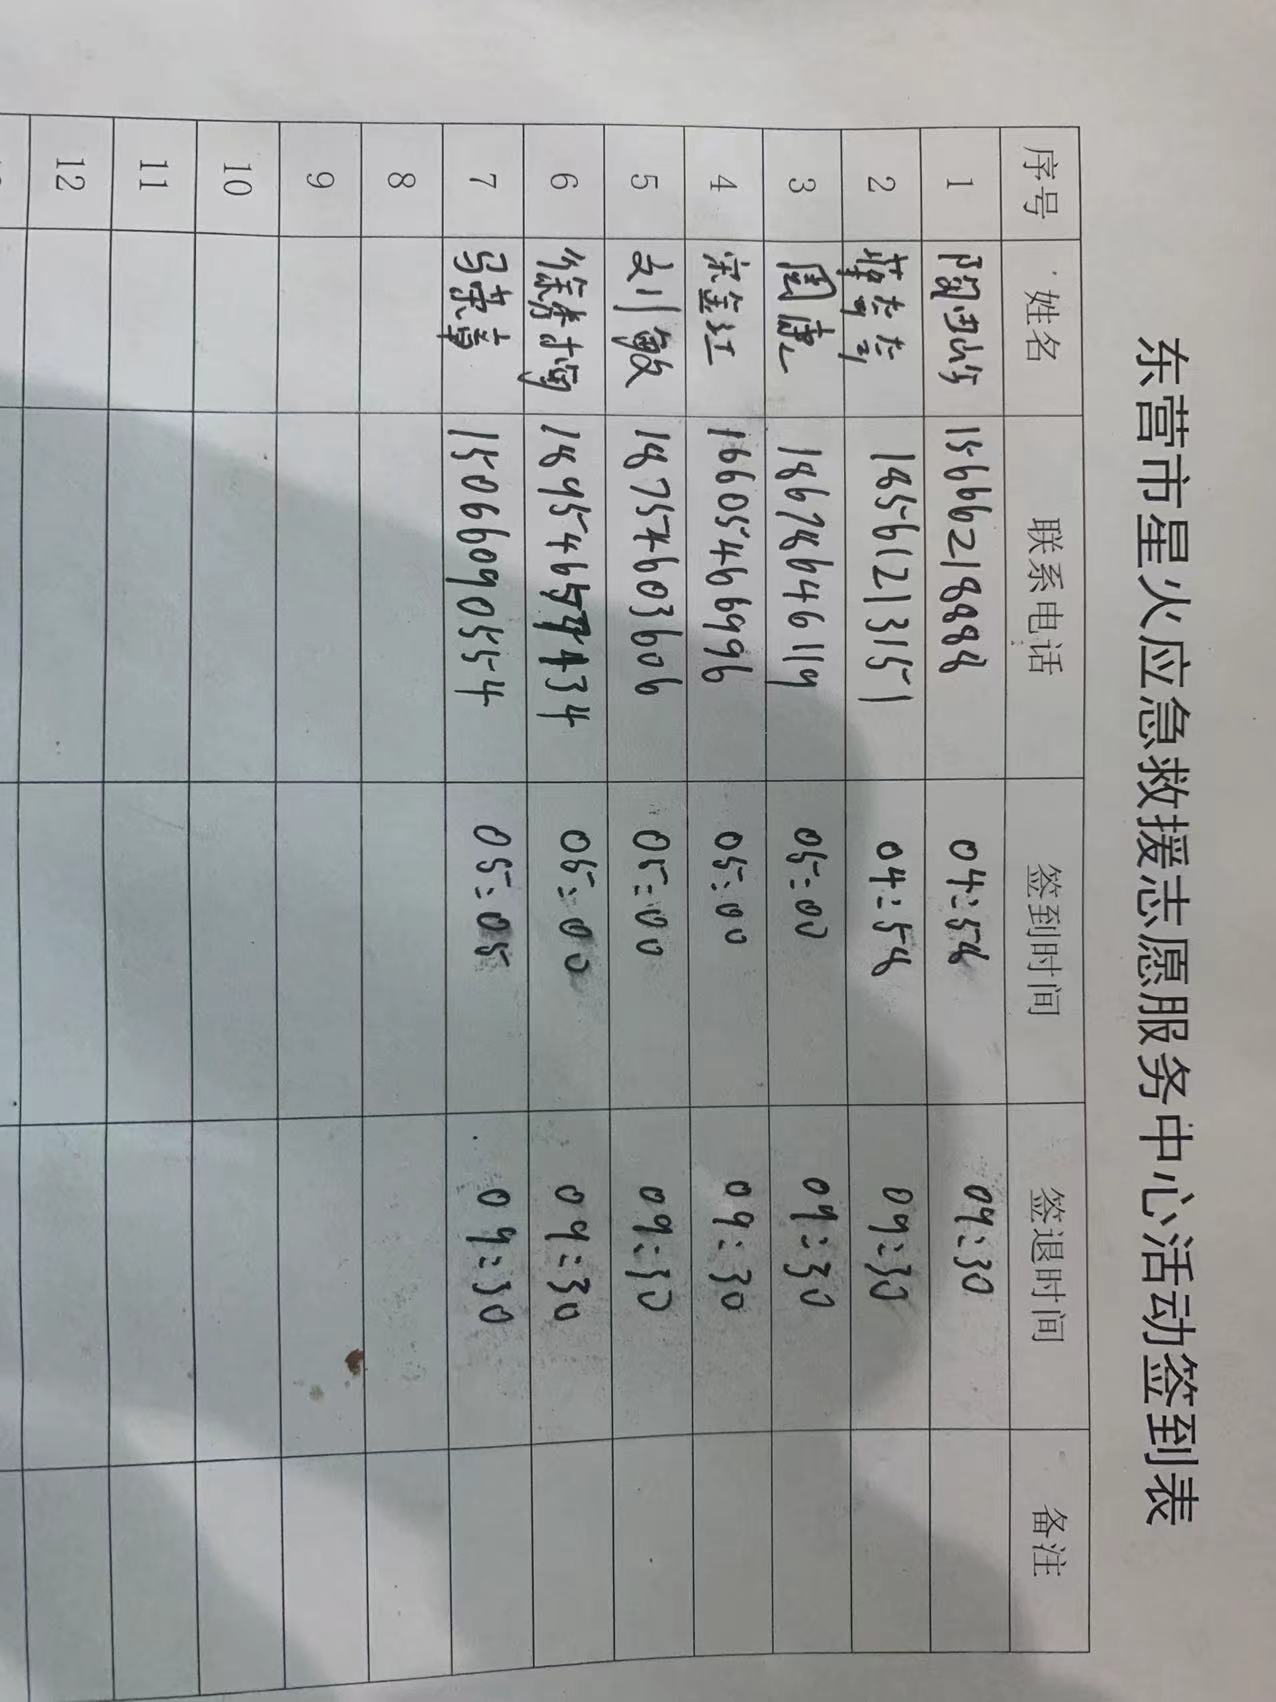 东营市星火应急救援志愿服务中心活动签到表
序号 姓名 联系电话 签到时间 签退时间 备注
1 15666218888 04:58 09:30
2 18561213151 04:58 09:30
3 周康 18678646119 05:00 09:30
4 宋金红 16605466996 05:00 09:30
5 刘敏 18754603606 05:00 09:30
6 05:00 09:30
7 马荣章 15066090554 05:05 09:30
8
9
10
11
12